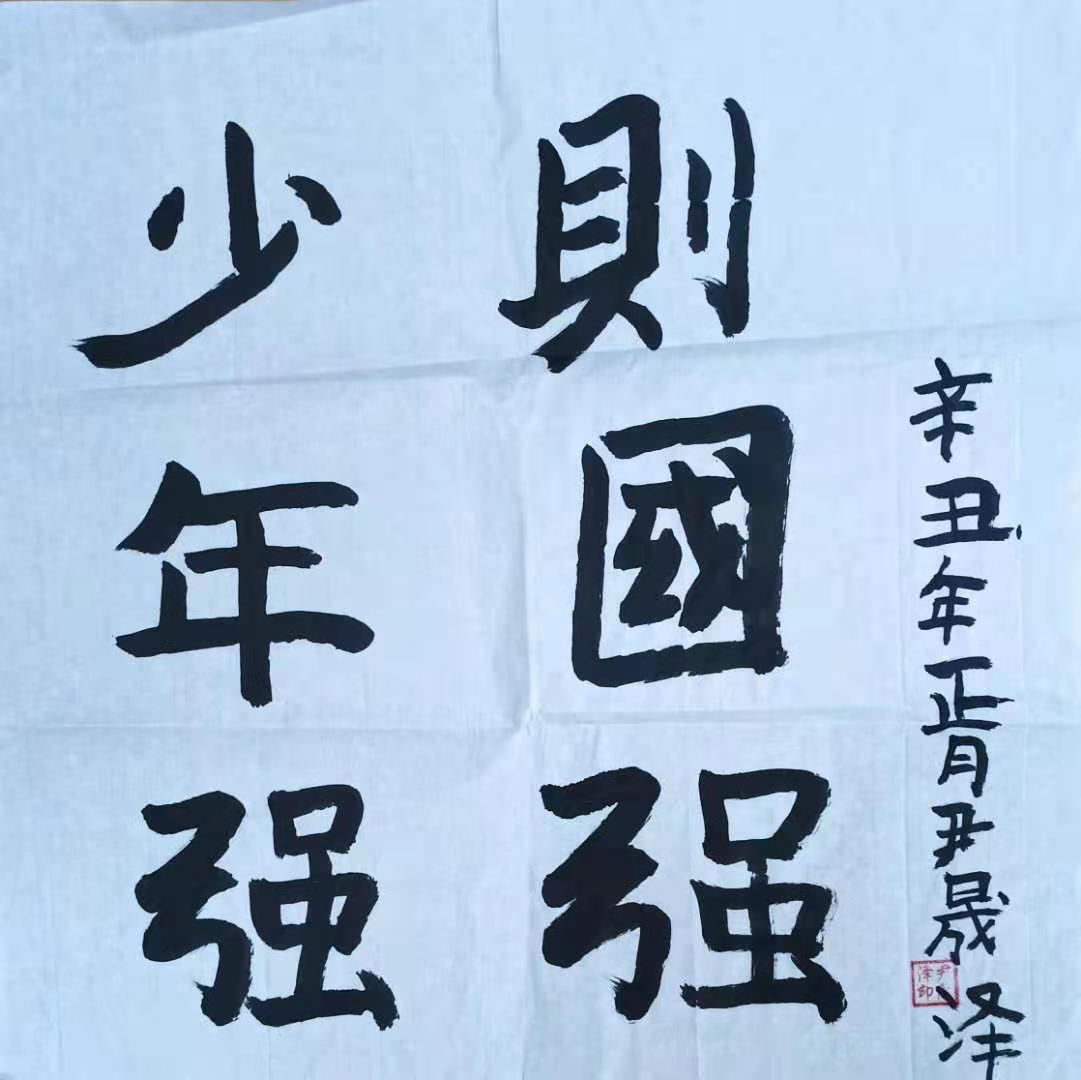 少年强
則國强
辛丑年正月尹晟泽